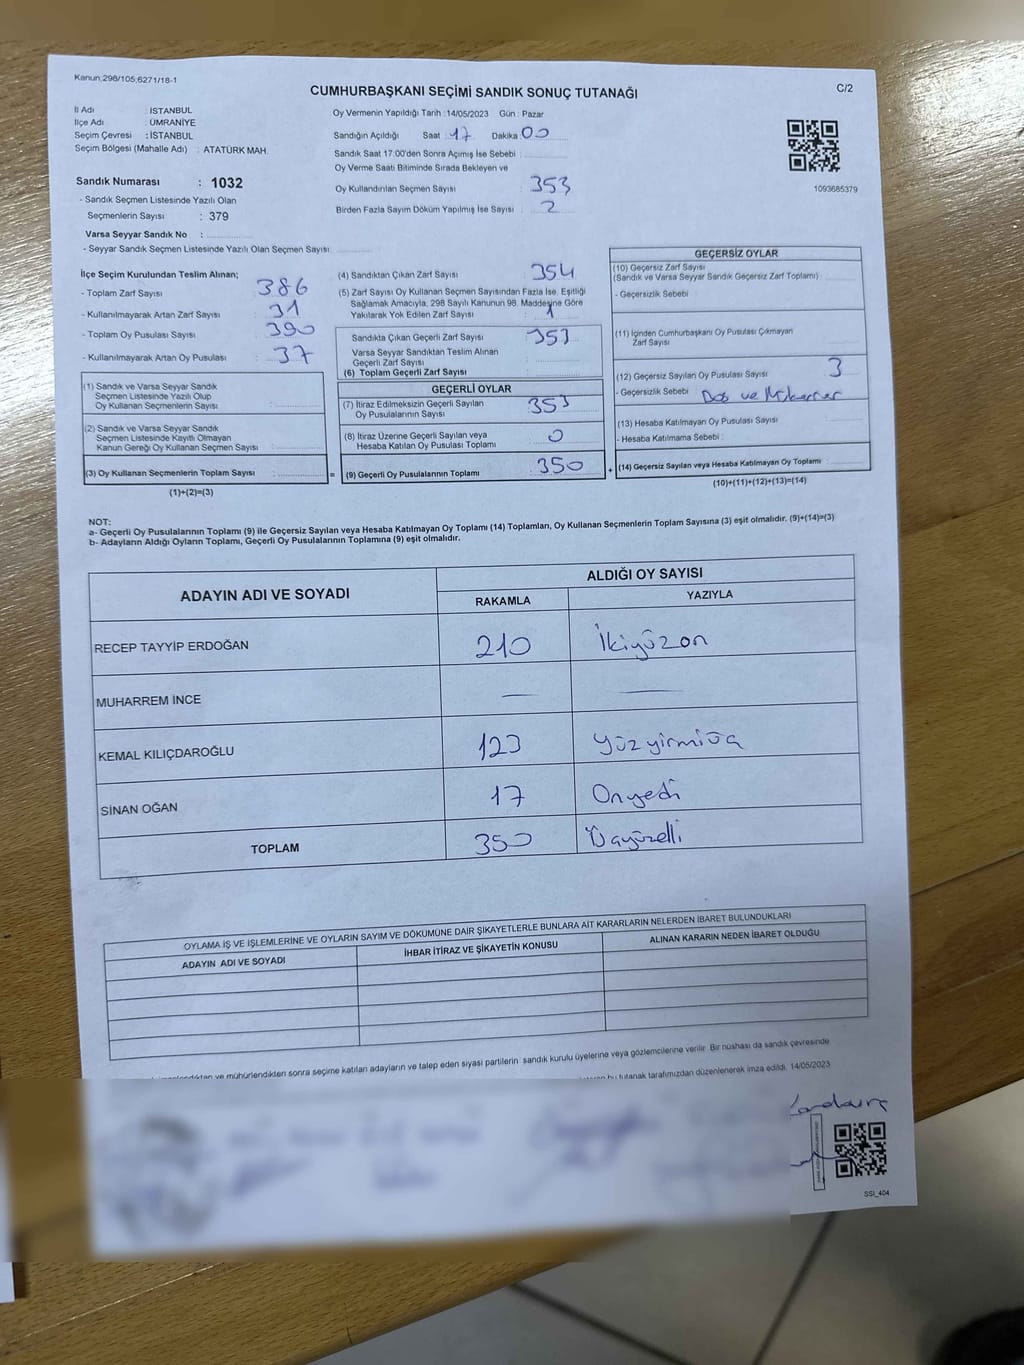 Kanun:298/105,6271/18-1
CUMHURBAŞKANI SEÇİMİ SANDIK SONUÇ TUTANAĞI
C/2
İl Adı : İSTANBUL
İlçe Adı : ÜMRANİYE
Seçim Çevresi : İSTANBUL
Seçim Bölgesi (Mahalle Adı) : ATATÜRK MAH.
Sandık Numarası : 1032
- Sandık Seçmen Listesinde Yazılı Olan
Seçmenlerin Sayısı : 379
Varsa Seyyar Sandık No :
- Seyyar Sandık Seçmen Listesinde Yazılı Olan Seçmen Sayısı:
Oy Vermenin Yapıldığı Tarih : 14/05/2023 Gün : Pazar
Sandığın Açıldığı Saat : 17 Dakika 00
Sandık Saat 17:00'den Sonra Açımış İse Sebebi :
Oy Verme Saati Bitiminde Sırada Bekleyen ve
Oy Kullandırılan Seçmen Sayısı : 353
Birden Fazla Sayım Döküm Yapılmış İse Sayısı : 2
1093685379
İlçe Seçim Kurulundan Teslim Alınan;
- Toplam Zarf Sayısı : 386
- Kullanılmayarak Artan Zarf Sayısı : 31
- Toplam Oy Pusulası Sayısı : 390
- Kullanılmayarak Artan Oy Pusulası : 37
(1) Sandık ve Varsa Seyyar Sandık
Seçmen Listesinde Yazılı Olup
Oy Kullanan Seçmenlerin Sayısı :
(2) Sandık ve Varsa Seyyar Sandık
Seçmen Listesinde Kayıtlı Olmayan
Kanun Gereği Oy Kullanan Seçmen Sayısı :
(3) Oy Kullanan Seçmenlerin Toplam Sayısı : =
(1)+(2)=(3)
(4) Sandıktan Çıkan Zarf Sayısı : 354
(5) Zarf Sayısı Oy Kullanan Seçmen Sayısından Fazla İse, Eşitliği
Sağlamak Amacıyla, 298 Sayılı Kanunun 98. Maddesine Göre
Yakılarak Yok Edilen Zarf Sayısı : 1
Sandıkta Çıkan Geçerli Zarf Sayısı : 353
Varsa Seyyar Sandıktan Teslim Alınan
Geçerli Zarf Sayısı :
(6) Toplam Geçerli Zarf Sayısı :
GEÇERLİ OYLAR
(7) İtiraz Edilmeksizin Geçerli Sayılan
Oy Pusulalarının Sayısı : 353
(8) İtiraz Üzerine Geçerli Sayılan veya
Hesaba Katılan Oy Pusulası Toplamı : 0
(9) Geçerli Oy Pusulalarının Toplamı : 350 +
GEÇERSİZ OYLAR
(10) Geçersiz Zarf Sayısı
(Sandık ve Varsa Seyyar Sandık Geçersiz Zarf Toplamı) :
- Geçersizlik Sebebi :
(11) İçinden Cumhurbaşkanı Oy Pusulası Çıkmayan
Zarf Sayısı :
(12) Geçersiz Sayılan Oy Pusulası Sayısı : 3
- Geçersizlik Sebebi : ve
(13) Hesaba Katılmayan Oy Pusulası Sayısı :
- Hesaba Katılmama Sebebi :
(14) Geçersiz Sayılan veya Hesaba Katılmayan Oy Toplamı :
(10)+(11)+(12)+(13)=(14)
NOT:
a- Geçerli Oy Pusulalarının Toplamı (9) ile Geçersiz Sayılan veya Hesaba Katılmayan Oy Toplamı (14) Toplamları, Oy Kullanan Seçmenlerin Toplam Sayısına (3) eşit olmalıdır. (9)+(14)=(3)
b- Adayların Aldığı Oyların Toplamı, Geçerli Oy Pusulalarının Toplamına (9) eşit olmalıdır.
ADAYIN ADI VE SOYADI ALDIĞI OY SAYISI
RAKAMLA YAZIYLA
RECEP TAYYİP ERDOĞAN 210 İkiyüzon
MUHARREM İNCE — —
KEMAL KILIÇDAROĞLU 123 Yüzyirmiüç
SİNAN OĞAN 17 Onyedi
TOPLAM 350 Üçyüzelli
OYLAMA İŞ VE İŞLEMLERİNE VE OYLARIN SAYIM VE DÖKÜMÜNE DAİR ŞİKAYETLERLE BUNLARA AİT KARARLARIN NELERDEN İBARET BULUNDUKLARI
ADAYIN ADI VE SOYADI İHBAR İTİRAZ VE ŞİKAYETİN KONUSU ALINAN KARARIN NEDEN İBARET OLDUĞU
ve mühürlendikten sonra seçime katılan adayların ve talep eden siyasi partilerin sandık kurulu üyelerine veya gözlemcilerine verilir. Bir nüshası da sandık çevresinde
bu tutanak tarafımızdan düzenlenerek imza edildi. 14/05/2023
SSI_404